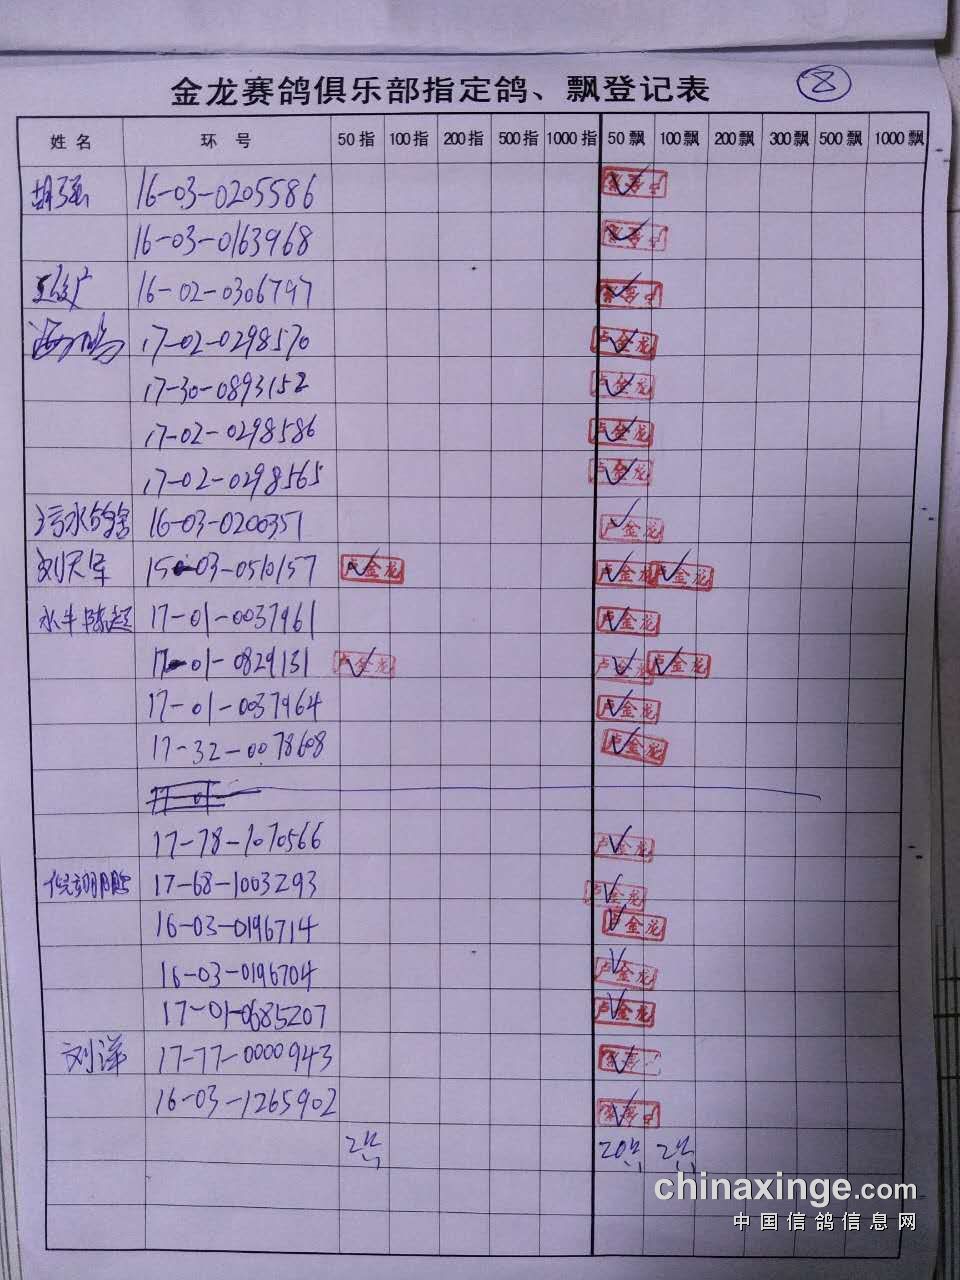 金龙赛鸽俱乐部指定鸽、飘登记表 8
姓名 环号 50指 100指 200指 500指 1000指 50飘 100飘 200飘 300飘 500飘 1000飘
胡强 16-03-0205586 ✓
16-03-0163968 ✓
16-02-0306797 ✓
17-02-0298570 卢金龙 ✓
17-30-0893152 卢金龙 ✓
17-02-0298586 卢金龙 ✓
17-02-0298565 卢金龙 ✓
16-03-0200351 卢金龙 ✓
刘天军 15-03-0510157 卢金龙 ✓ 卢金龙 ✓ 卢金龙 ✓
水牛陈超 17-01-0037961 卢金龙 ✓
17-01-0829131 卢金龙 ✓ 卢金龙 ✓ 卢金龙 ✓
17-01-0037964 卢金龙 ✓
17-32-0078608 卢金龙 ✓
17-78-1070566 卢金龙 ✓
17-68-1003293 卢金龙 ✓
16-03-0196714 卢金龙 ✓
16-03-0196704 卢金龙 ✓
17-01-0685207 卢金龙 ✓
刘洋 17-77-0000943 ✓
16-03-1265902 ✓
2 20 2
chinaxinge.com
中国信鸽信息网